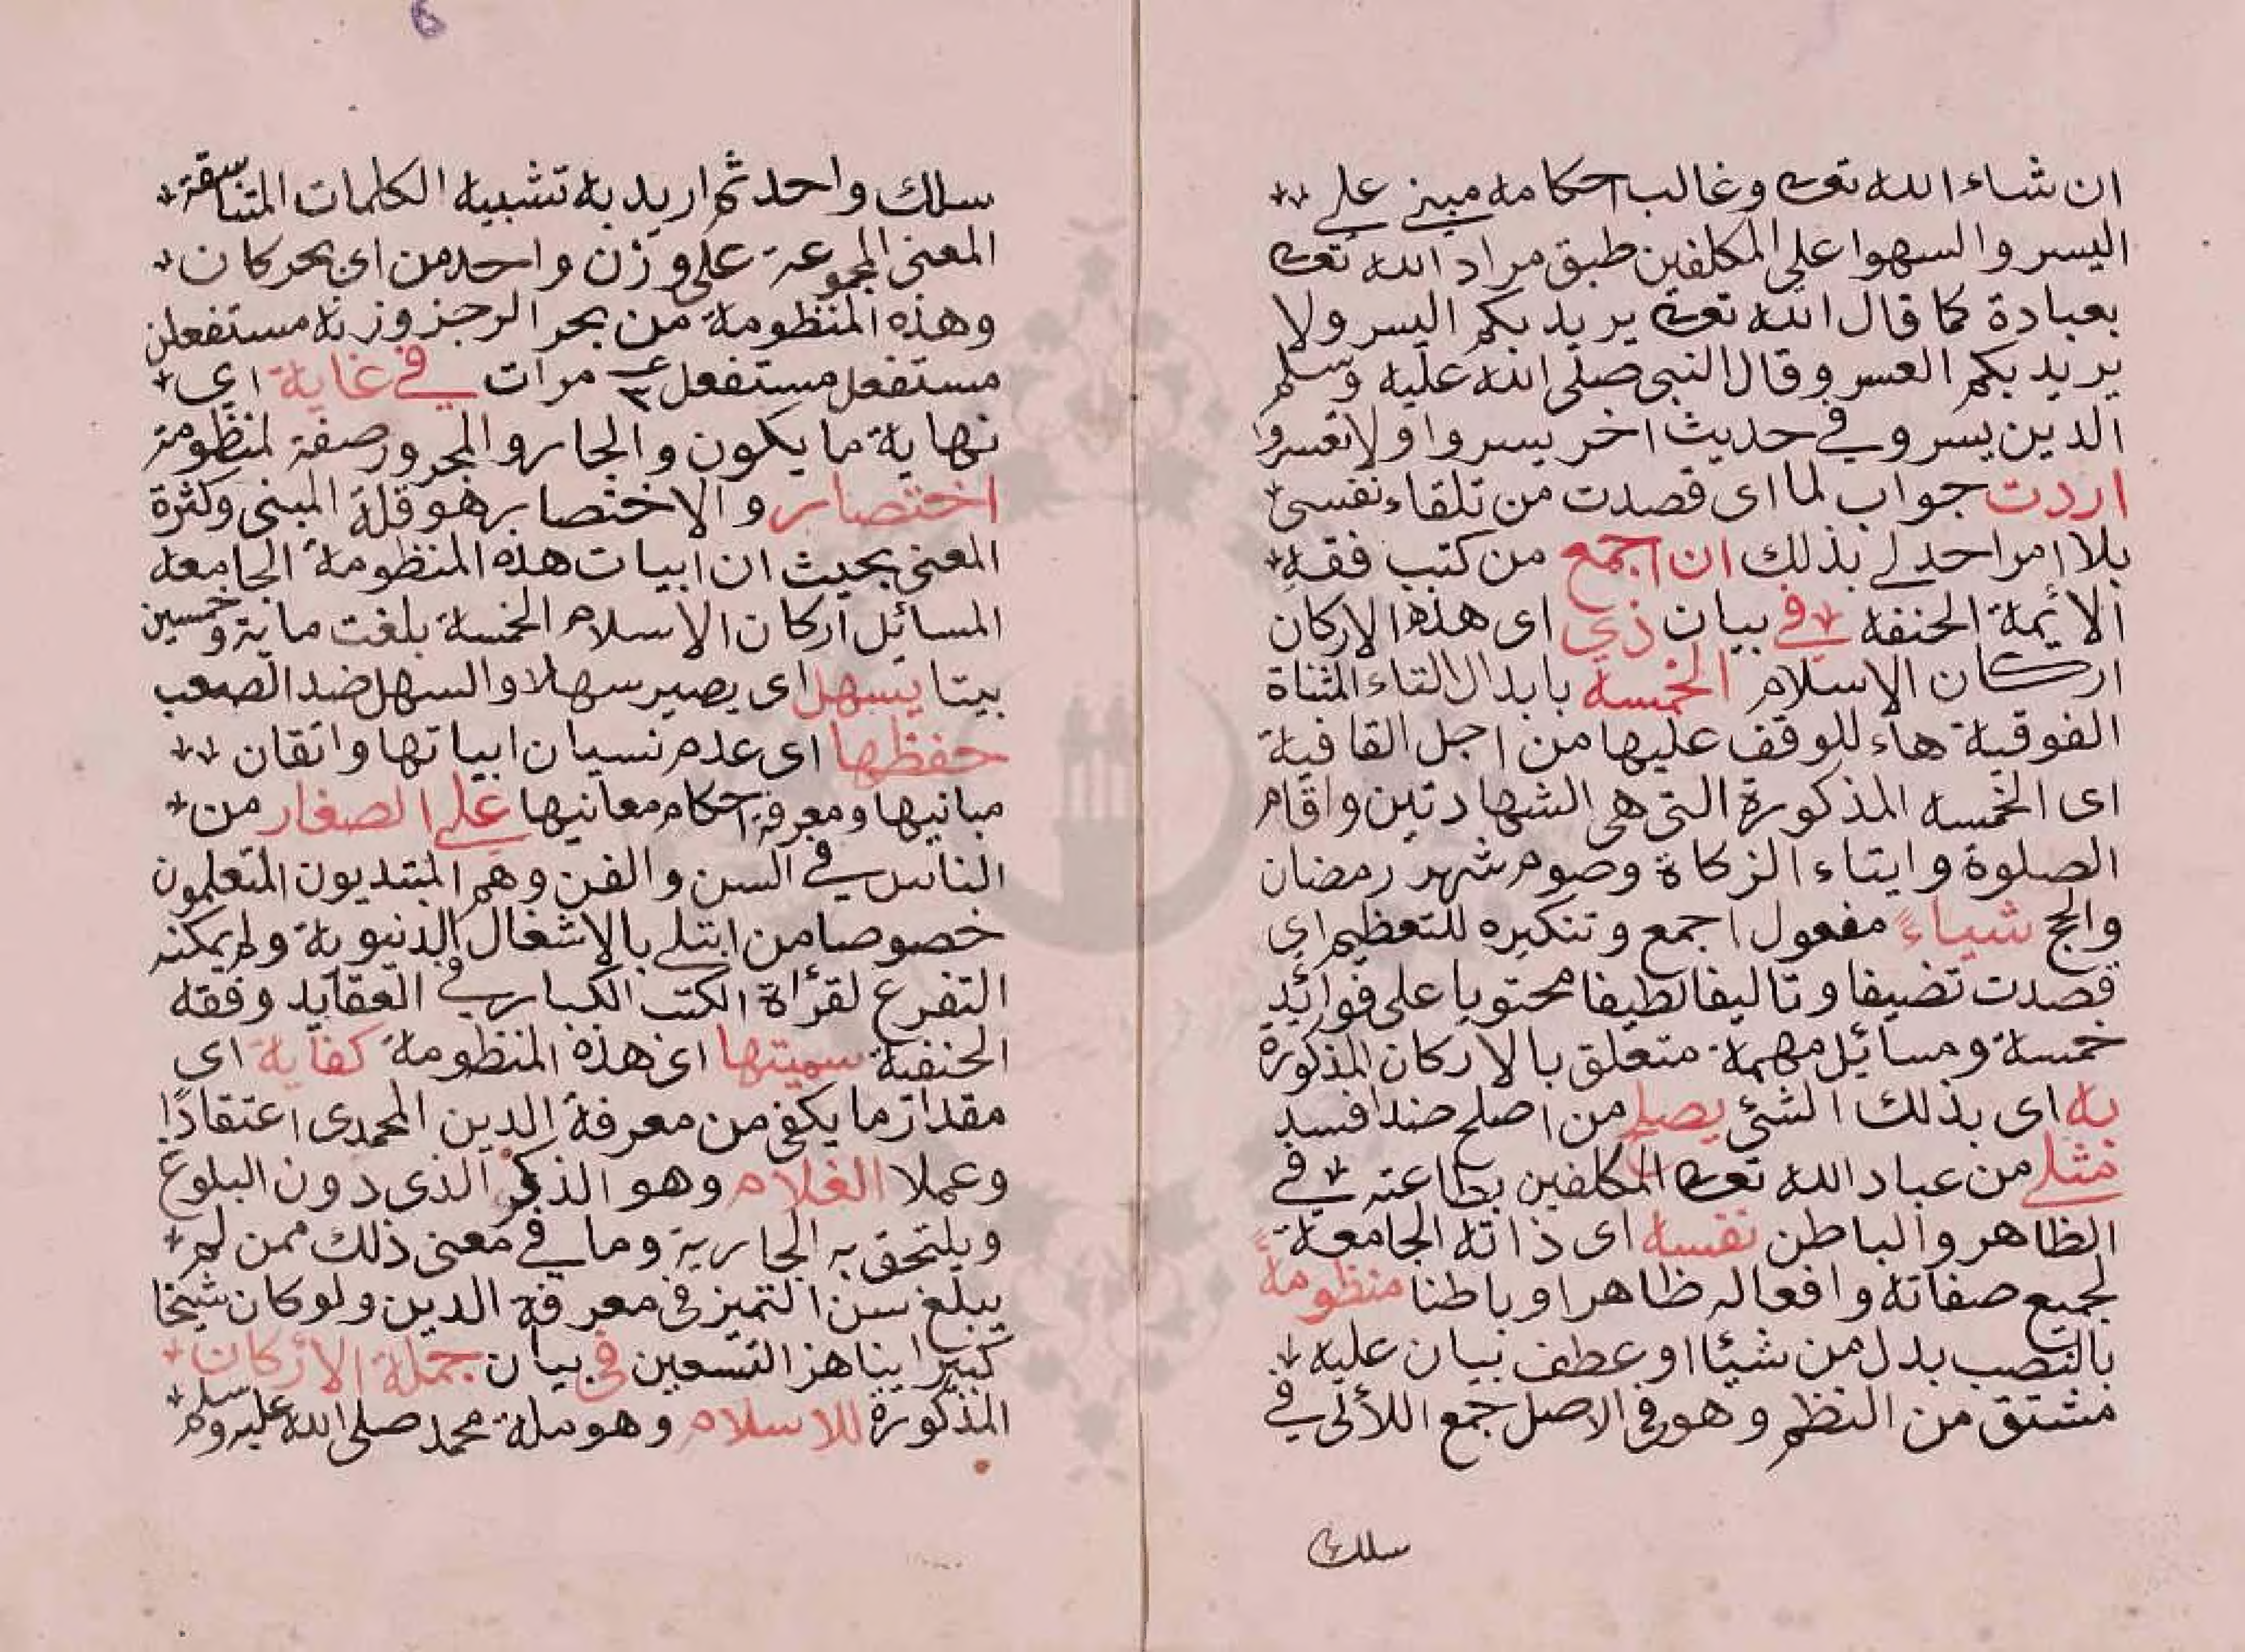 ان شاء الله تعالى وغالب احكامه مبني على
اليسر والسهوا على المكلفين طبق مراد الله تعالى
بعبادة كما قال الله تعالى يريد بكم اليسر ولا
يريد بكم العسر وقال النبي صلى الله عليه وسلم
الدين يسر وفي حديث اخر يسروا ولا تعسروا
اردت جواب لما اى قصدت من تلقاء نفسى
بلا امر احد لي بذلك ان اجمع من كتب فقه
الائيمة الحنفه في بيان ذي اى هذه الاركان
اركان الاسلام الخمسه بابدال التاء المثناة
الفوقية هاء للوقف عليها من اجل القافية
اى الخمسه المذكورة التى هى الشهادتين واقام
الصلوة وايتاء الزكاة وصوم شهر رمضان
والحج شياءً مفعول اجمع وتنكيره للتعظيم اي
قصدت تضيفا وتاليفا لطيفا محتويا على فوائد
خمسة ومسائل مهمة متعلق بالاركان المذكورة
به اى بذلك الشئي يصلح من اصلح ضد افسد
مثلي من عباد الله تعالى المكلفين بطاعته في
الظاهر والباطن نفسه اى ذاته الجامعة
لجميع صفاته وافعاله ظاهرا وباطنا منظومةً
بالنصب بدل من شيئا او عطف بيان عليه
مشتق من النظم وهو في الاصل جمع اللألى في
سلك
سلك واحد ثم اريد به تشبيه الكلمات المتناسقة
المعنى المجموعة على وزن واحد من اى بحر كان
وهذه المنظومة من بحر الرجز وزنه مستفعلن
مستفعل مستفعل مرات في غاية اي
نهاية ما يكون والجار والمجرور صفة لمنظومة
اختصار والاختصار هو قلة المبنى وكثرة
المعنى بحيث ان ابيات هذه المنظومة الجامعه
المسائل اركان الاسلام الخمسة بلغت ماية وخمسين
بيتا يسهل اى يصير سهلا والسهل ضد الصعب
حفظها اى عدم نسيان ابياتها واتقان
مبانيها ومعرفة احكام معانيها على الصغار من
الناس في السن والفن وهم المبتديون المتعلمون
خصوصا من ابتلي بالاشغال الدنيوية ولم يمكنه
التفرغ لقرأة الكتب الكبار في العقايد وفقه
الحنفية سميتها اى هذه المنظومة كفاية اى
مقدار ما يكفى من معرفة الدين المحمدى اعتقادًا
وعملا الغلام وهو الذكر الذى دون البلوغ
ويلتحق به الجارية وما في معنى ذلك ممن لم
يبلغ سن التميز في معرفة الدين ولو كان شيخا
كبيرا يناهز التسعين في بيان جملة الاركان
المذكورة للاسلام وهو ملة محمد صلى الله عليه وسلم